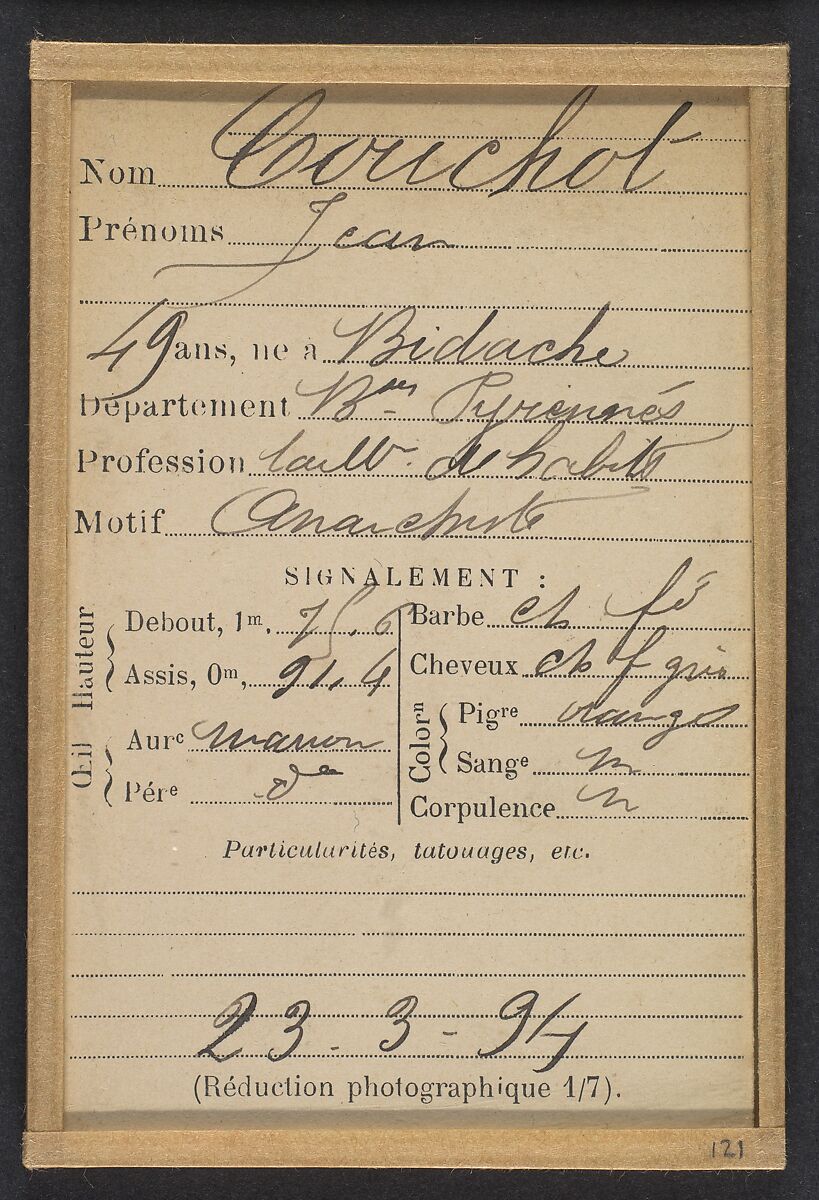 Nom Couchot
Prénoms Jean
49 ans, né à Bidache
Département Bses Pyrennés
Profession taillr. de habits
Motif Anarchiste
SIGNALEMENT :
Hauteur
Debout, 1m, 75,6
Assis, 0m, 91,4
Œil
Aure marron
Pére do
Barbe ch fé
Cheveux ch f gris
Colorn
Pigre orangé
Sange m
Corpulence m
Particularités, tatouages, etc.
23-3-94
(Réduction photographique 1/7).
121